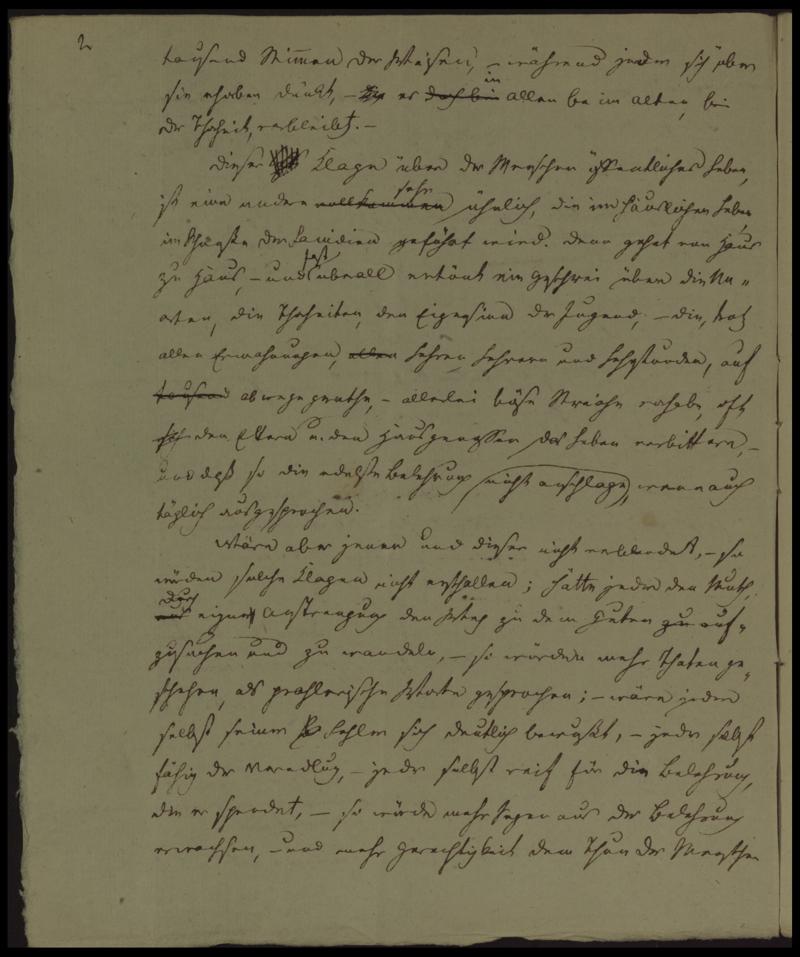 2
tausend Stimmen der Weisen, – während jeder sich über
sie erhaben dünkt, – er doch bei in allen beim alten, bei
der Thorheit, verbleibt. –
Dieser Klage über der Menschen öffentliches Leben,
ist eine andere vollkommen sehr ähnlich, die im häuslichen Leben
im Schooße der Familien geführt wird. Denn gehet von Haus
zu Haus, – und fast überall ertönt ein Geschrei über die Un„
arten, die Thorheiten, den Eigensinn der Jugend, – die, trotz
allen Ermahnungen, allen Lehren Lehrern und Lehrstunden, auf
tausend abwege gerathe, – allerlei böse Streiche erhebe, oft
den Eltern u. den Hausgenossen das Leben verbittern, –
und daß so die edelste Belehrung nicht anschlage, wenn auch
täglich ausgesprochen.
Wäre aber jener und dieser nicht verblendet, – so
würden solche Klagen nicht erschallen; hätte jeder den Muth,
aus durch eigne Anstrengung den Weg zu dem Guten zu auf„
zusuchen und zu wandeln, – so würden mehr Thaten ge„
schehen, als prahlerische Worte gesprochen; – wäre jeder
selbst seiner Fehler sich deutlich bewußt, – jeder selbst
fähig der Veredlung, – jeder selbst reif für die Belehrung,
die er spendet, – so würde mehr Segen aus der Belehrung
erwachsen, – und mehr Gerechtigkeit dem Thun der Menschen